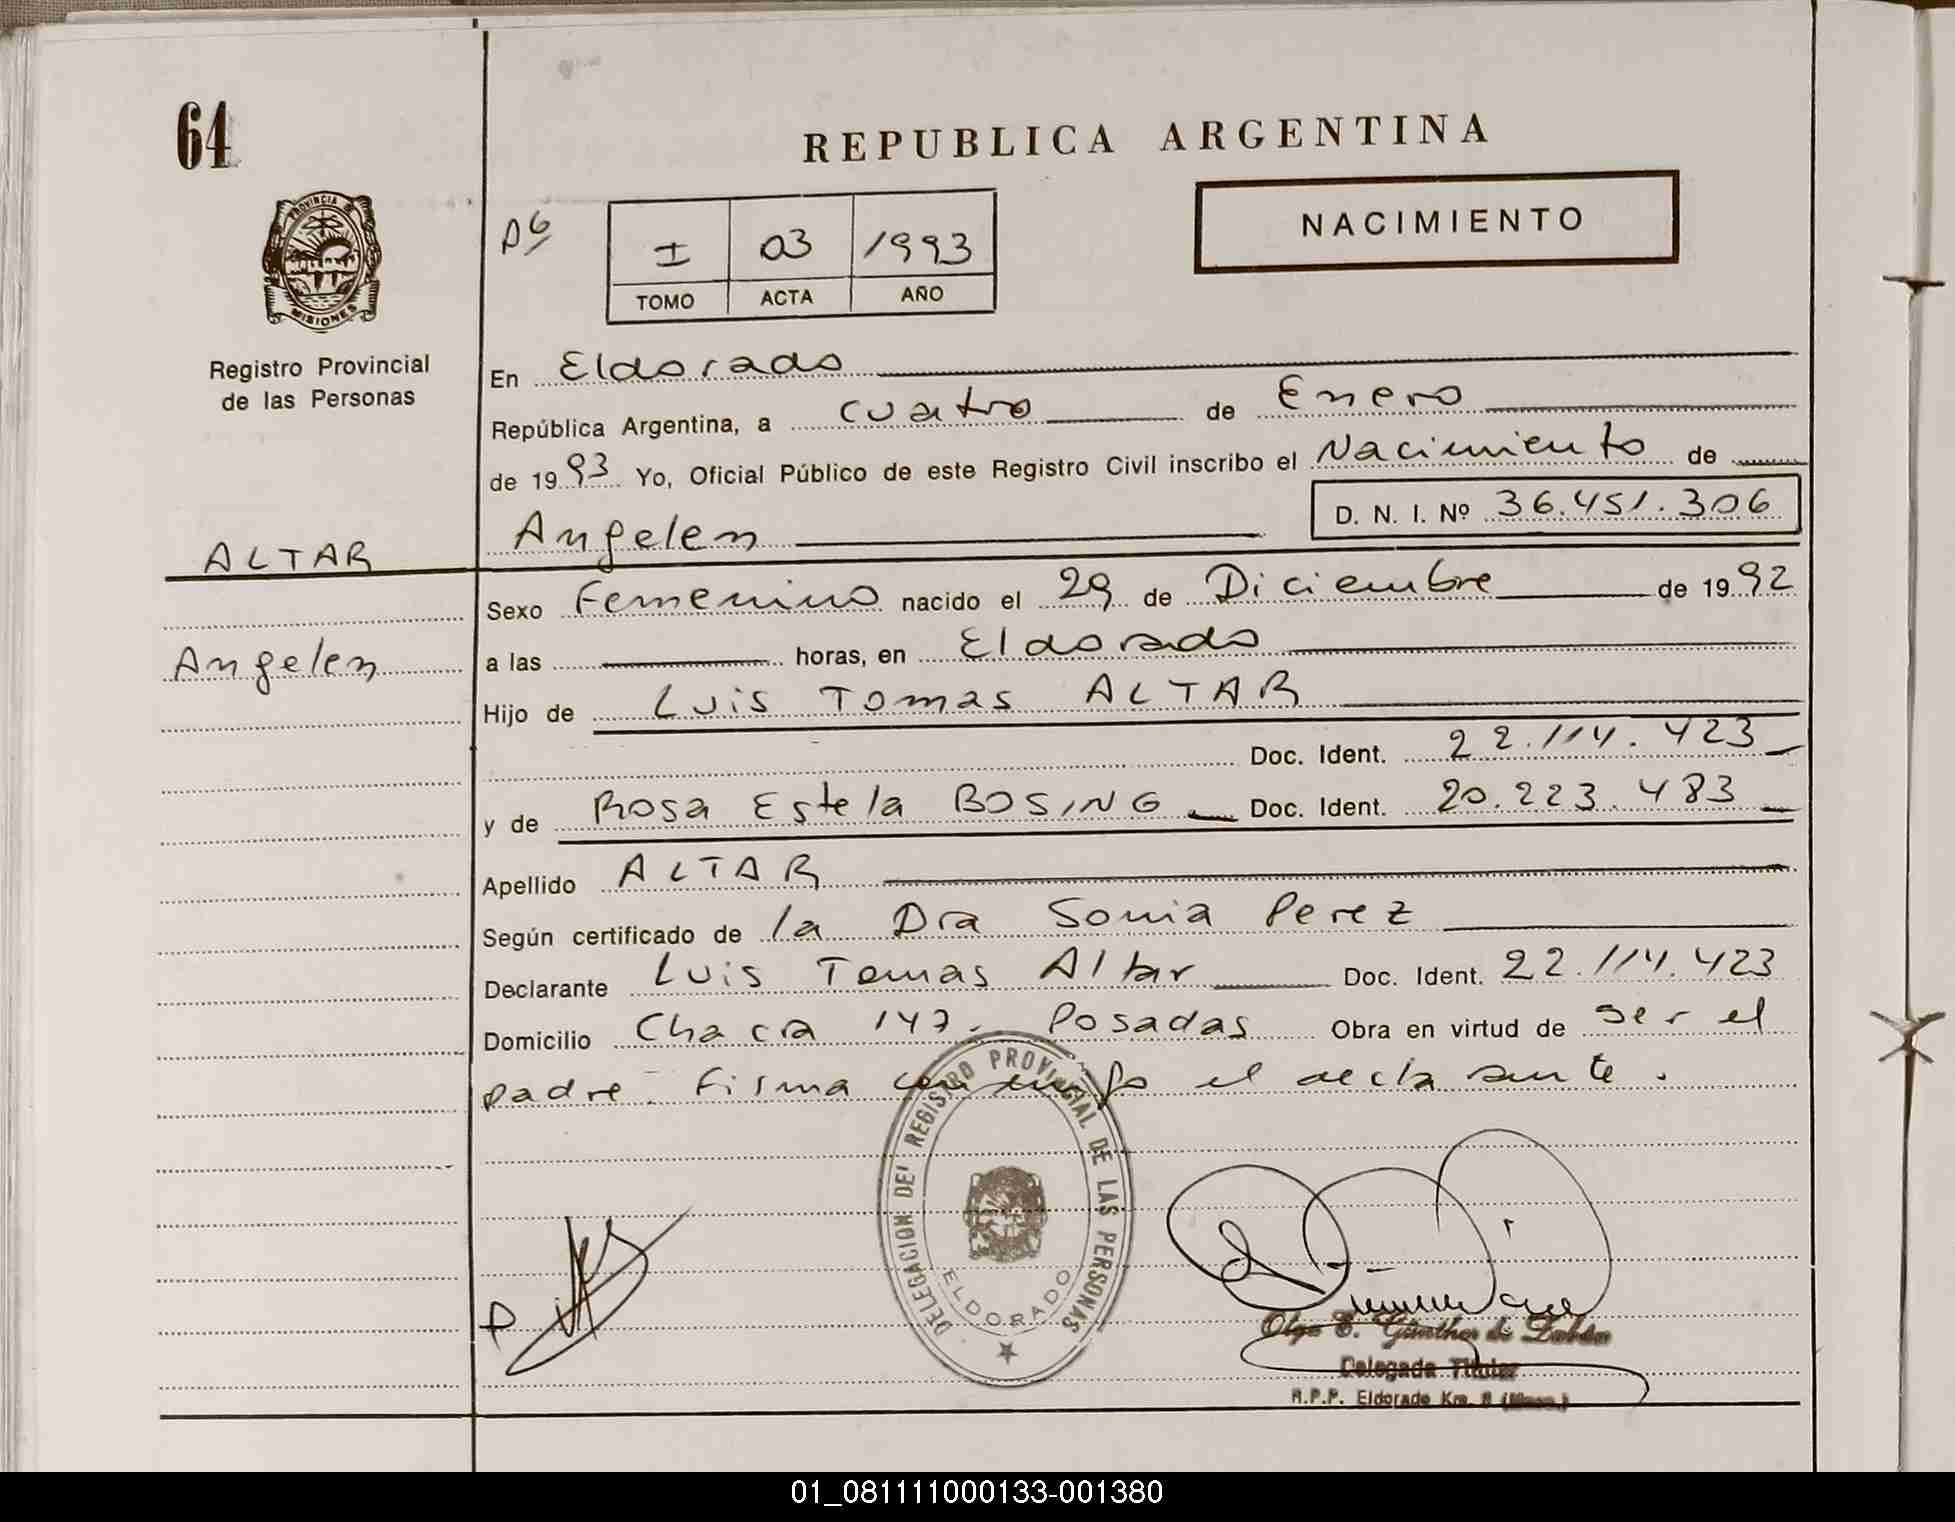 64
REPUBLICA ARGENTINA
PROVINCIA DE
MISIONES
Registro Provincial
de las Personas
I 03 1993
TOMO ACTA AÑO
NACIMIENTO
En Eldorado
República Argentina, a cuatro de Enero
de 1993 Yo, Oficial Público de este Registro Civil inscribo el Nacimiento de
D. N. I. Nº 36.451.306
ALTAR Angelen
Sexo Femenino nacido el 29 de Diciembre de 1992
Angelen a las horas, en Eldorado
Hijo de Luis Tomas ALTAR
Doc. Ident. 22.114.423
y de Rosa Estela BOSING Doc. Ident. 20.223.483
Apellido ALTAR
Según certificado de la Dra Sonia Perez
Declarante Luis Tomas Altar Doc. Ident. 22.114.423
Domicilio Chacra 147. Posadas Obra en virtud de ser el
padre. Firma conmigo el declarante.
DELEGACION DEL REGISTRO PROVINCIAL DE LAS PERSONAS
ELDORADO
Olga E. Günther de
Delegada Titular
R.P.P. Eldorado Km. 
01_081111000133-001380